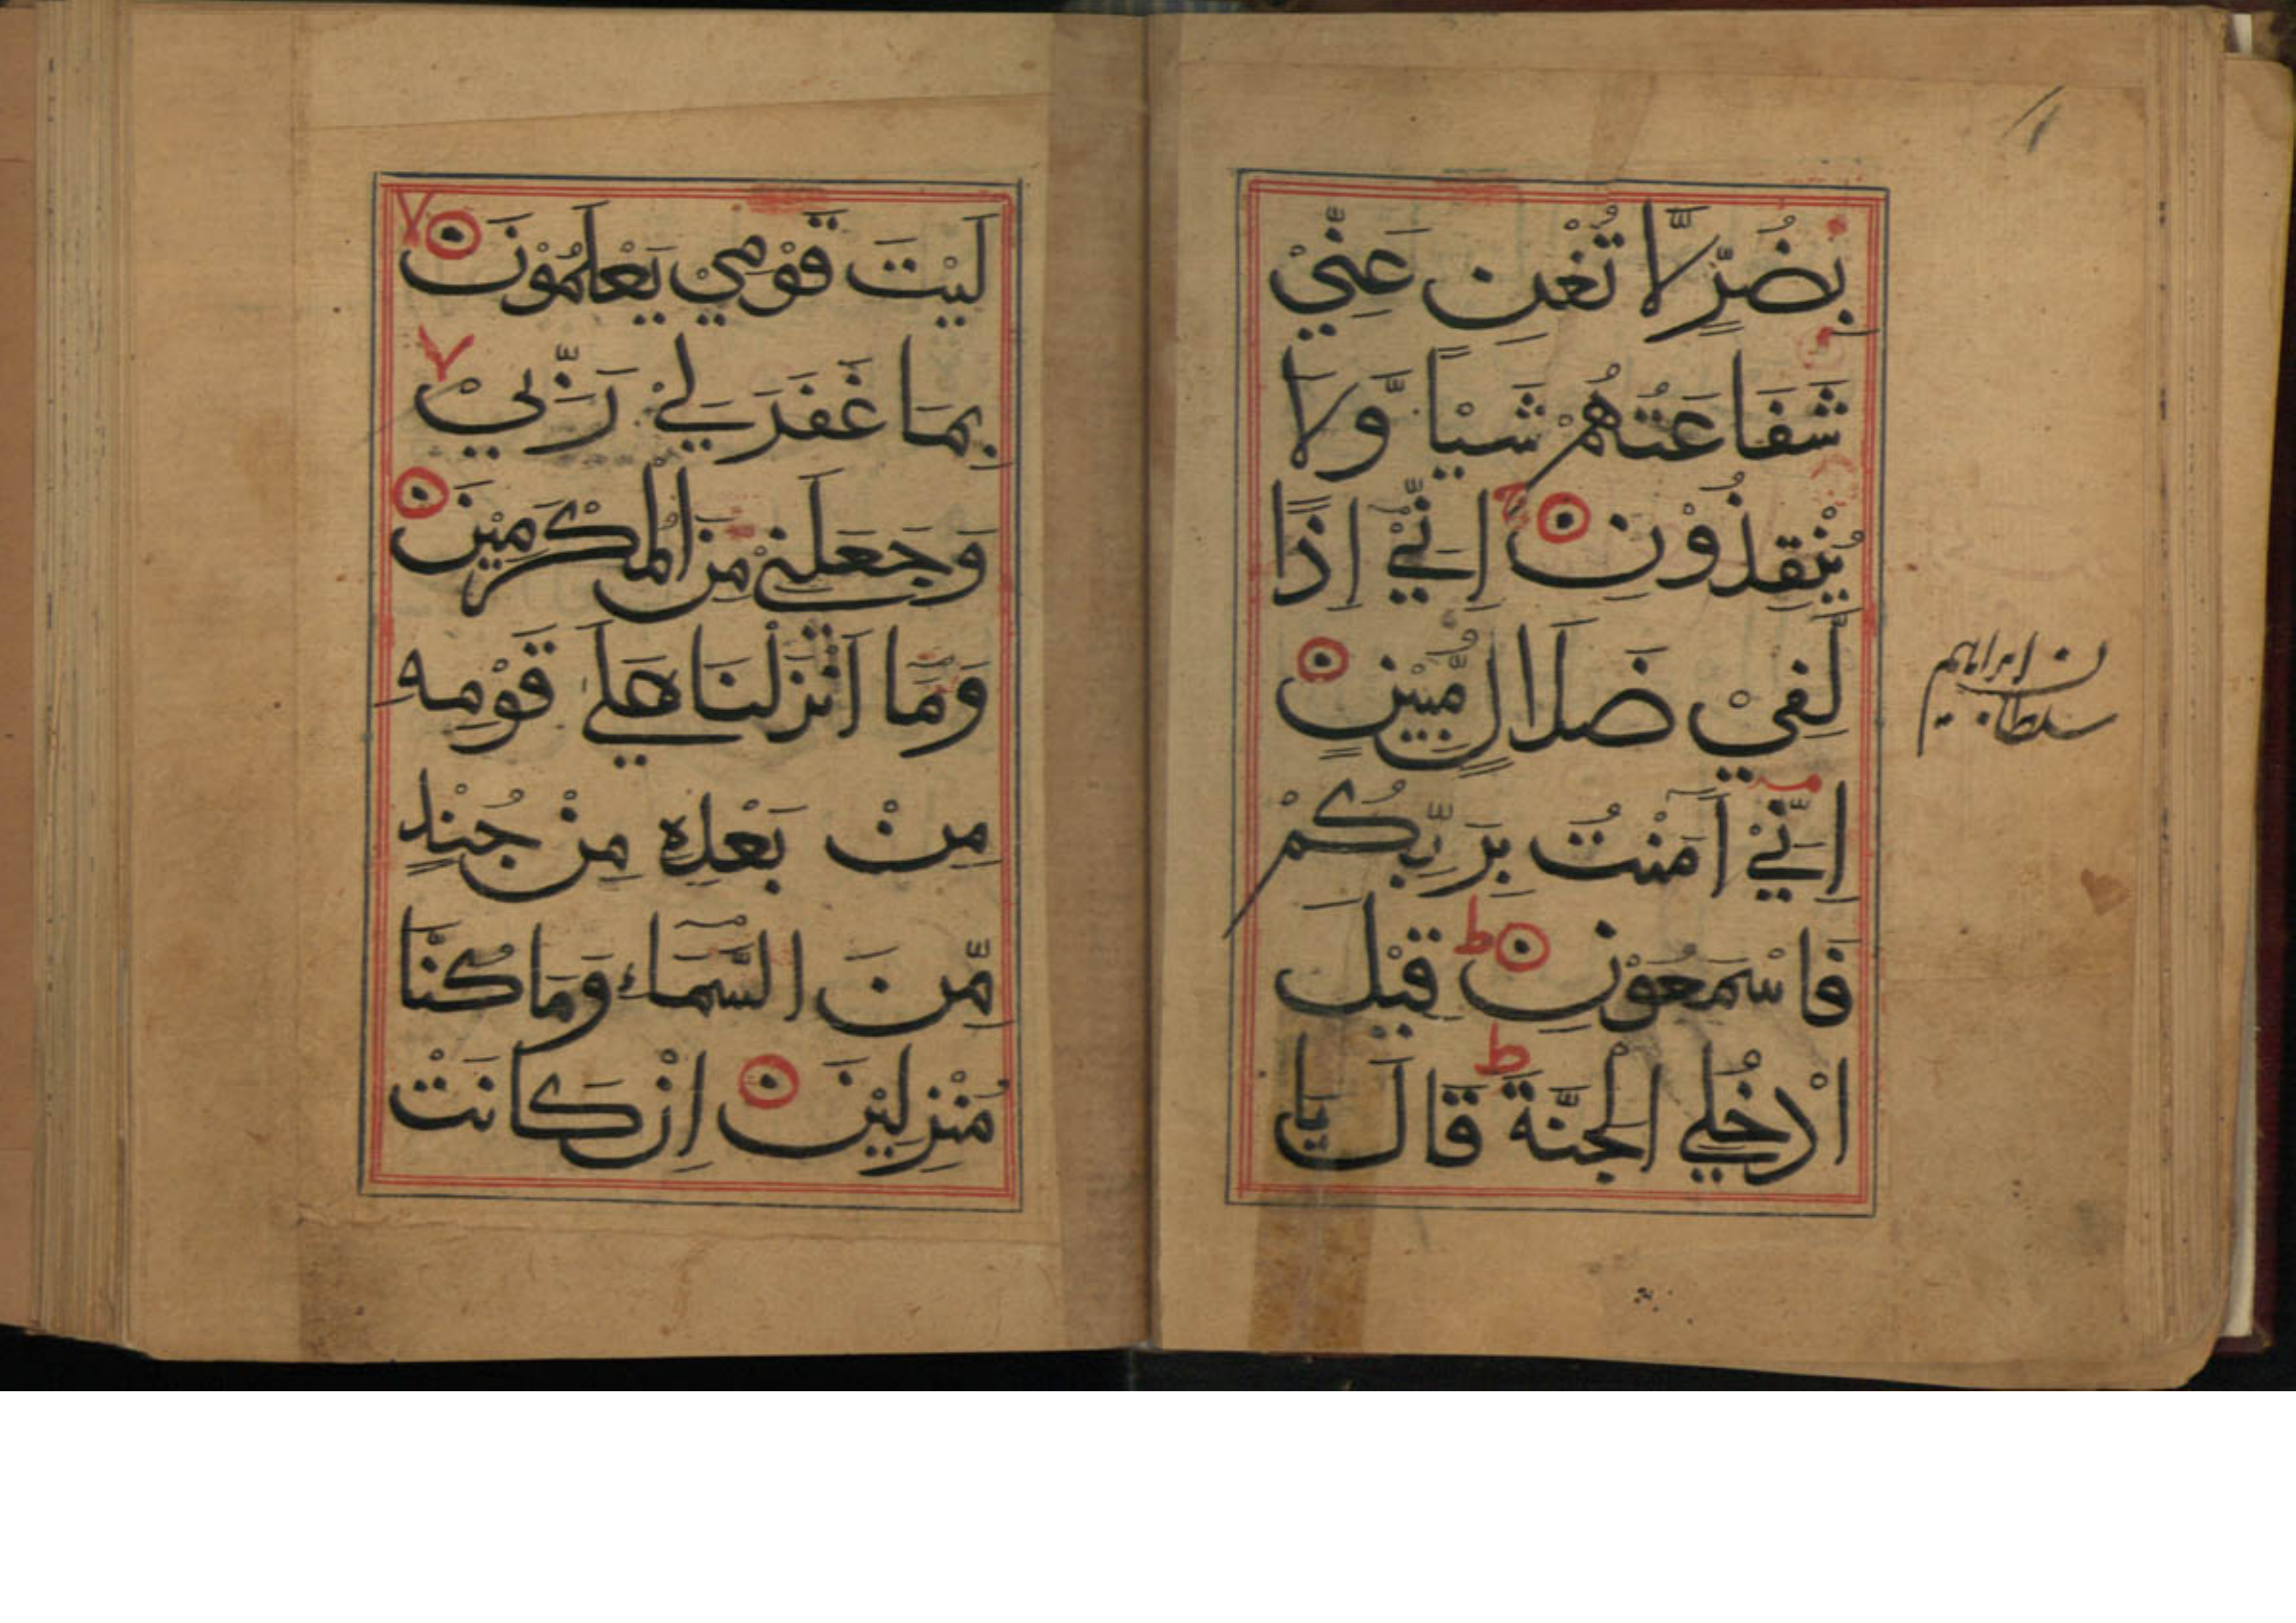 بِضُرٍّ لَّا تُغْنِ عَنِّيْ
شَفَاعَتُهُمْ شَيْاً وَّلَا
يُنْقِذُوْنِ اِنِّيْ اِذًا
لَّفِيْ ضَلَالٍ مُّبِيْنٍ
اِنِّيْ اٰمَنْتُ بِرَبِّكُمْ
فَاسْمَعُوْنِ ط قِيْلَ
ادْخُلِي الْجَنَّةَ ط قَالَ يَا
سلطان ابراهيم
لَيْتَ قَوْمِيْ يَعْلَمُوْنَ
بِمَا غَفَرَ لِيْ رَبِّيْ
وَجَعَلَنِيْ مِنَ الْمُكْرَمِيْنَ
وَمَا اَنْزَلْنَا عَلٰي قَوْمِهٖ
مِنْ بَعْدِهٖ مِنْ جُنْدٍ
مِّنَ السَّمَاءِ وَمَا كُنَّا
مُنْزِلِيْنَ اِنْ كَانَتْ